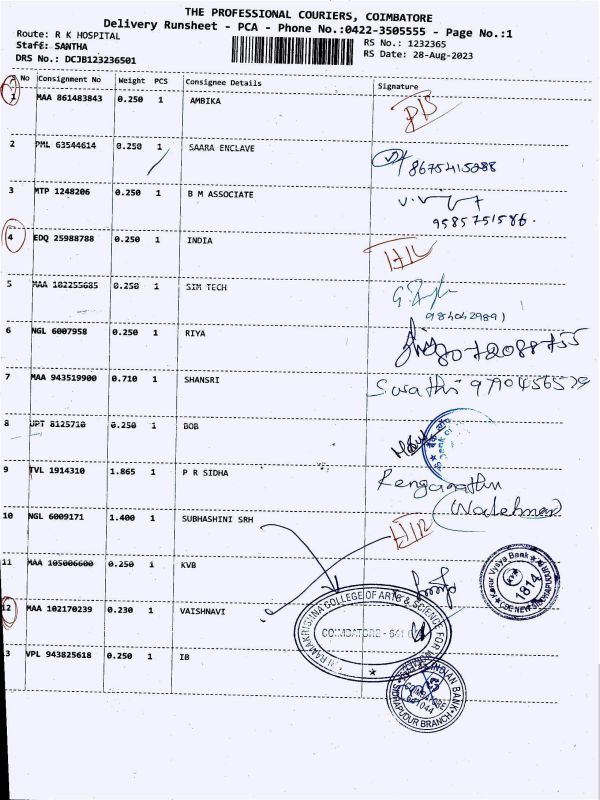 THE PROFESSIONAL COURIERS, COIMBATORE
Delivery Runsheet - PCA - Phone No.:0422-3505555 - Page No.:1
Route: R K HOSPITAL
Staff: SANTHA
DRS No.: DCJB123236501
RS No.: 1232365
RS Date: 28-Aug-2023
S No Consignment No Weight PCS Consignee Details Signature
1 MAA 861483843 0.250 1 AMBIKA
2 PML 63544614 0.250 1 SAARA ENCLAVE
8675415088
3 MTP 1248206 0.250 1 B M ASSOCIATE
9585751586.
4 EDQ 25988788 0.250 1 INDIA
5 MAA 102255685 0.250 1 SIM TECH
6 NGL 6007958 0.250 1 RIYA
7 MAA 943519900 0.710 1 SHANSRI
Swathi 9790456579
8 UPT 8125710 0.250 1 BOB
9 TVL 1914310 1.865 1 P R SIDHA
(Watchman)
10 NGL 6009171 1.400 1 SUBHASHINI SRH
11 MAA 105006600 0.250 1 KVB
12 MAA 102170239 0.230 1 VAISHNAVI
13 VPL 943825618 0.250 1 IB
RAMAKRISHNA COLLEGE OF ARTS & SCIENCE FOR
COIMBATORE - 641 0
Vysya Bank
1814
INDIAN BANK
COIMBATORE
641044
BRANCH